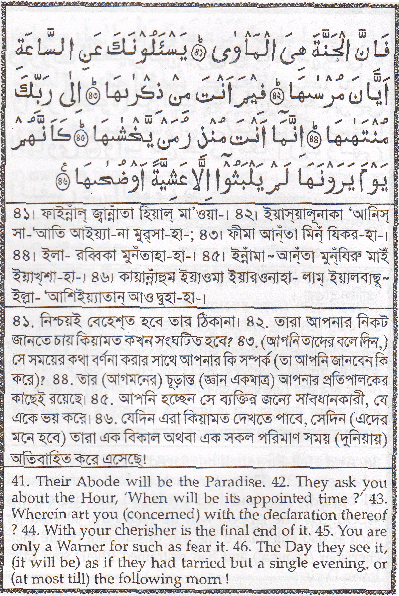 فَاِنَّ الْجَنَّةَ هِىَ الْمَاْوٰى ﴿٤١﴾ يَسْـَٔلُوْنَكَ عَنِ السَّاعَةِ
اَيَّانَ مُرْسٰىهَا ﴿٤٢﴾ فِيْمَ اَنْتَ مِنْ ذِكْرٰىهَا ﴿٤٣﴾ اِلٰى رَبِّكَ
مُنْتَهٰىهَا ﴿٤٤﴾ اِنَّمَآ اَنْتَ مُنْذِرُ مَنْ يَّخْشٰىهَا ﴿٤٥﴾ كَاَنَّهُمْ
يَوْمَ يَرَوْنَهَا لَمْ يَلْبَثُوْٓا اِلَّا عَشِيَّةً اَوْ ضُحٰىهَا ﴿٤٦﴾
৪১। ফাইন্নাল্ জ্বান্নাতা হিয়াল্ মা'ওয়া-। ৪২। ইয়াস্য়ালূনাকা 'আনিস্
সা-'আতি আইয়্যা-না মুর্সা-হা-; ৪৩। ফীমা আন্তা মিন্ যিকর-হা-।
৪৪। ইলা- রব্বিকা মুন্তাহা-হা-। ৪৫। ইন্নামা~ আন্তা মুন্যিরু মাইঁ
ইয়াখ্শা-হা-। ৪৬। কায়ান্নাহুম ইয়াওমা ইয়ারওনাহা- লাম্ ইয়ালবাছু~
ইল্লা- 'আশিইয়্যাতান্ আও দ্বুহা-হা-।
৪১. নিশ্চয়ই বেহেশ্ত হবে তার ঠিকানা। ৪২. তারা আপনার নিকট
জানতে চায় কিয়ামত কখন সংঘটিত হবে? ৪৩. (আপনি তাদের বলে দিন,)
সে সময়ের কথা বর্ণনা করার সাথে আপনার কি সম্পর্ক (তা আপনি জানবেন কি
করে)? ৪৪. তার (আগমনের) চূড়ান্ত (জ্ঞান একমাত্র) আপনার প্রতিপালকের
কাছেই রয়েছে। ৪৫. আপনি হচ্ছেন সে ব্যক্তির জন্যে সাবধানকারী, যে
একে ভয় করে। ৪৬. যেদিন এরা কিয়ামত দেখতে পাবে, সেদিন (এদের
মনে হবে) তারা এক বিকাল অথবা এক সকাল পরিমাণ সময় (দুনিয়ায়)
অতিবাহিত করে এসেছে!
41. Their Abode will be the Paradise. 42. They ask you
about the Hour, 'When will be its appointed time ?' 43.
Wherein art you (concerned) with the declaration thereof
? 44. With your cherisher is the final end of it. 45. You are
only a Warner for such as fear it. 46. The Day they see it,
(it will be) as if they had tarried but a single evening, or
(at most till) the following morn !